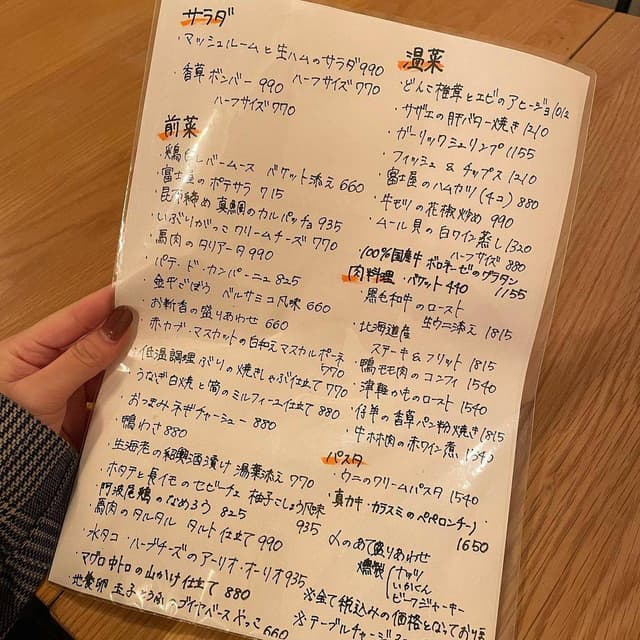 サラダ
・マッシュルームと生ハムのサラダ990
・香草ボンバー 990 ハーフサイズ770
ハーフサイズ770
前菜
・鶏白レバームース バゲット添え 660
・富士屋のポテサラ 715
・昆布締め真鯛のカルパッチョ 935
・いぶりがっこクリームチーズ 770
・馬肉のタリアータ 990
・パテ・ド・カンパーニュ 825
・金平ごぼう バルサミコ風味 660
・お新香の盛りあわせ 660
・赤カブ・マスカットの白和えマスカルポーネ
770
・低温調理ぶりの焼きしゃぶ仕立て 770
・うなぎ白焼と筍のミルフィーユ仕立て 880
・おつまみネギチャーシュー 880
・鴨わさ 880
・生海老の紹興酒漬け 湯葉添え 770
・ホタテと長イモのセビーチェ 柚子こしょう風味
935
・阿波尾鶏のなめろう 825
・馬肉のタルタル タルト仕立て 990
・水タコ・ハーブチーズのアーリオ・オーリオ 935
・マグロ中トロの山かけ仕立て 880
・地養卵 玉子とうふの
やっこ 660
温菜
・どんこ椎茸とエビのアヒージョ1012
・サザエの肝バター焼き 1210
・ガーリックシュリンプ 1155
・フィッシュ & チップス 1210
・富士屋のハムカツ(4コ) 880
・牛モツの花椒炒め 990
・ムール貝の白ワイン蒸し1320
ハーフサイズ 880
・100%国産牛 ボロネーゼのグラタン
1155
・バゲット 440
肉料理
・黒毛和牛のロースト
生ウニ添え 1815
・北海道産
ステーキ&フリット 1815
・鴨モモ肉のコンフィ 1540
・津軽がものロースト 1540
・仔羊の香草パン粉焼き1815
・牛ホホ肉の赤ワイン煮 1540
パスタ
・ウニのクリームパスタ 1540
・真カキ・カラスミのペペロンチーノ
1650
〆のあて盛りあわせ
燻製
ナッツ
いかくん
ビーフジャーキー
※全て税込みの価格となっており
※テーブルチャージ